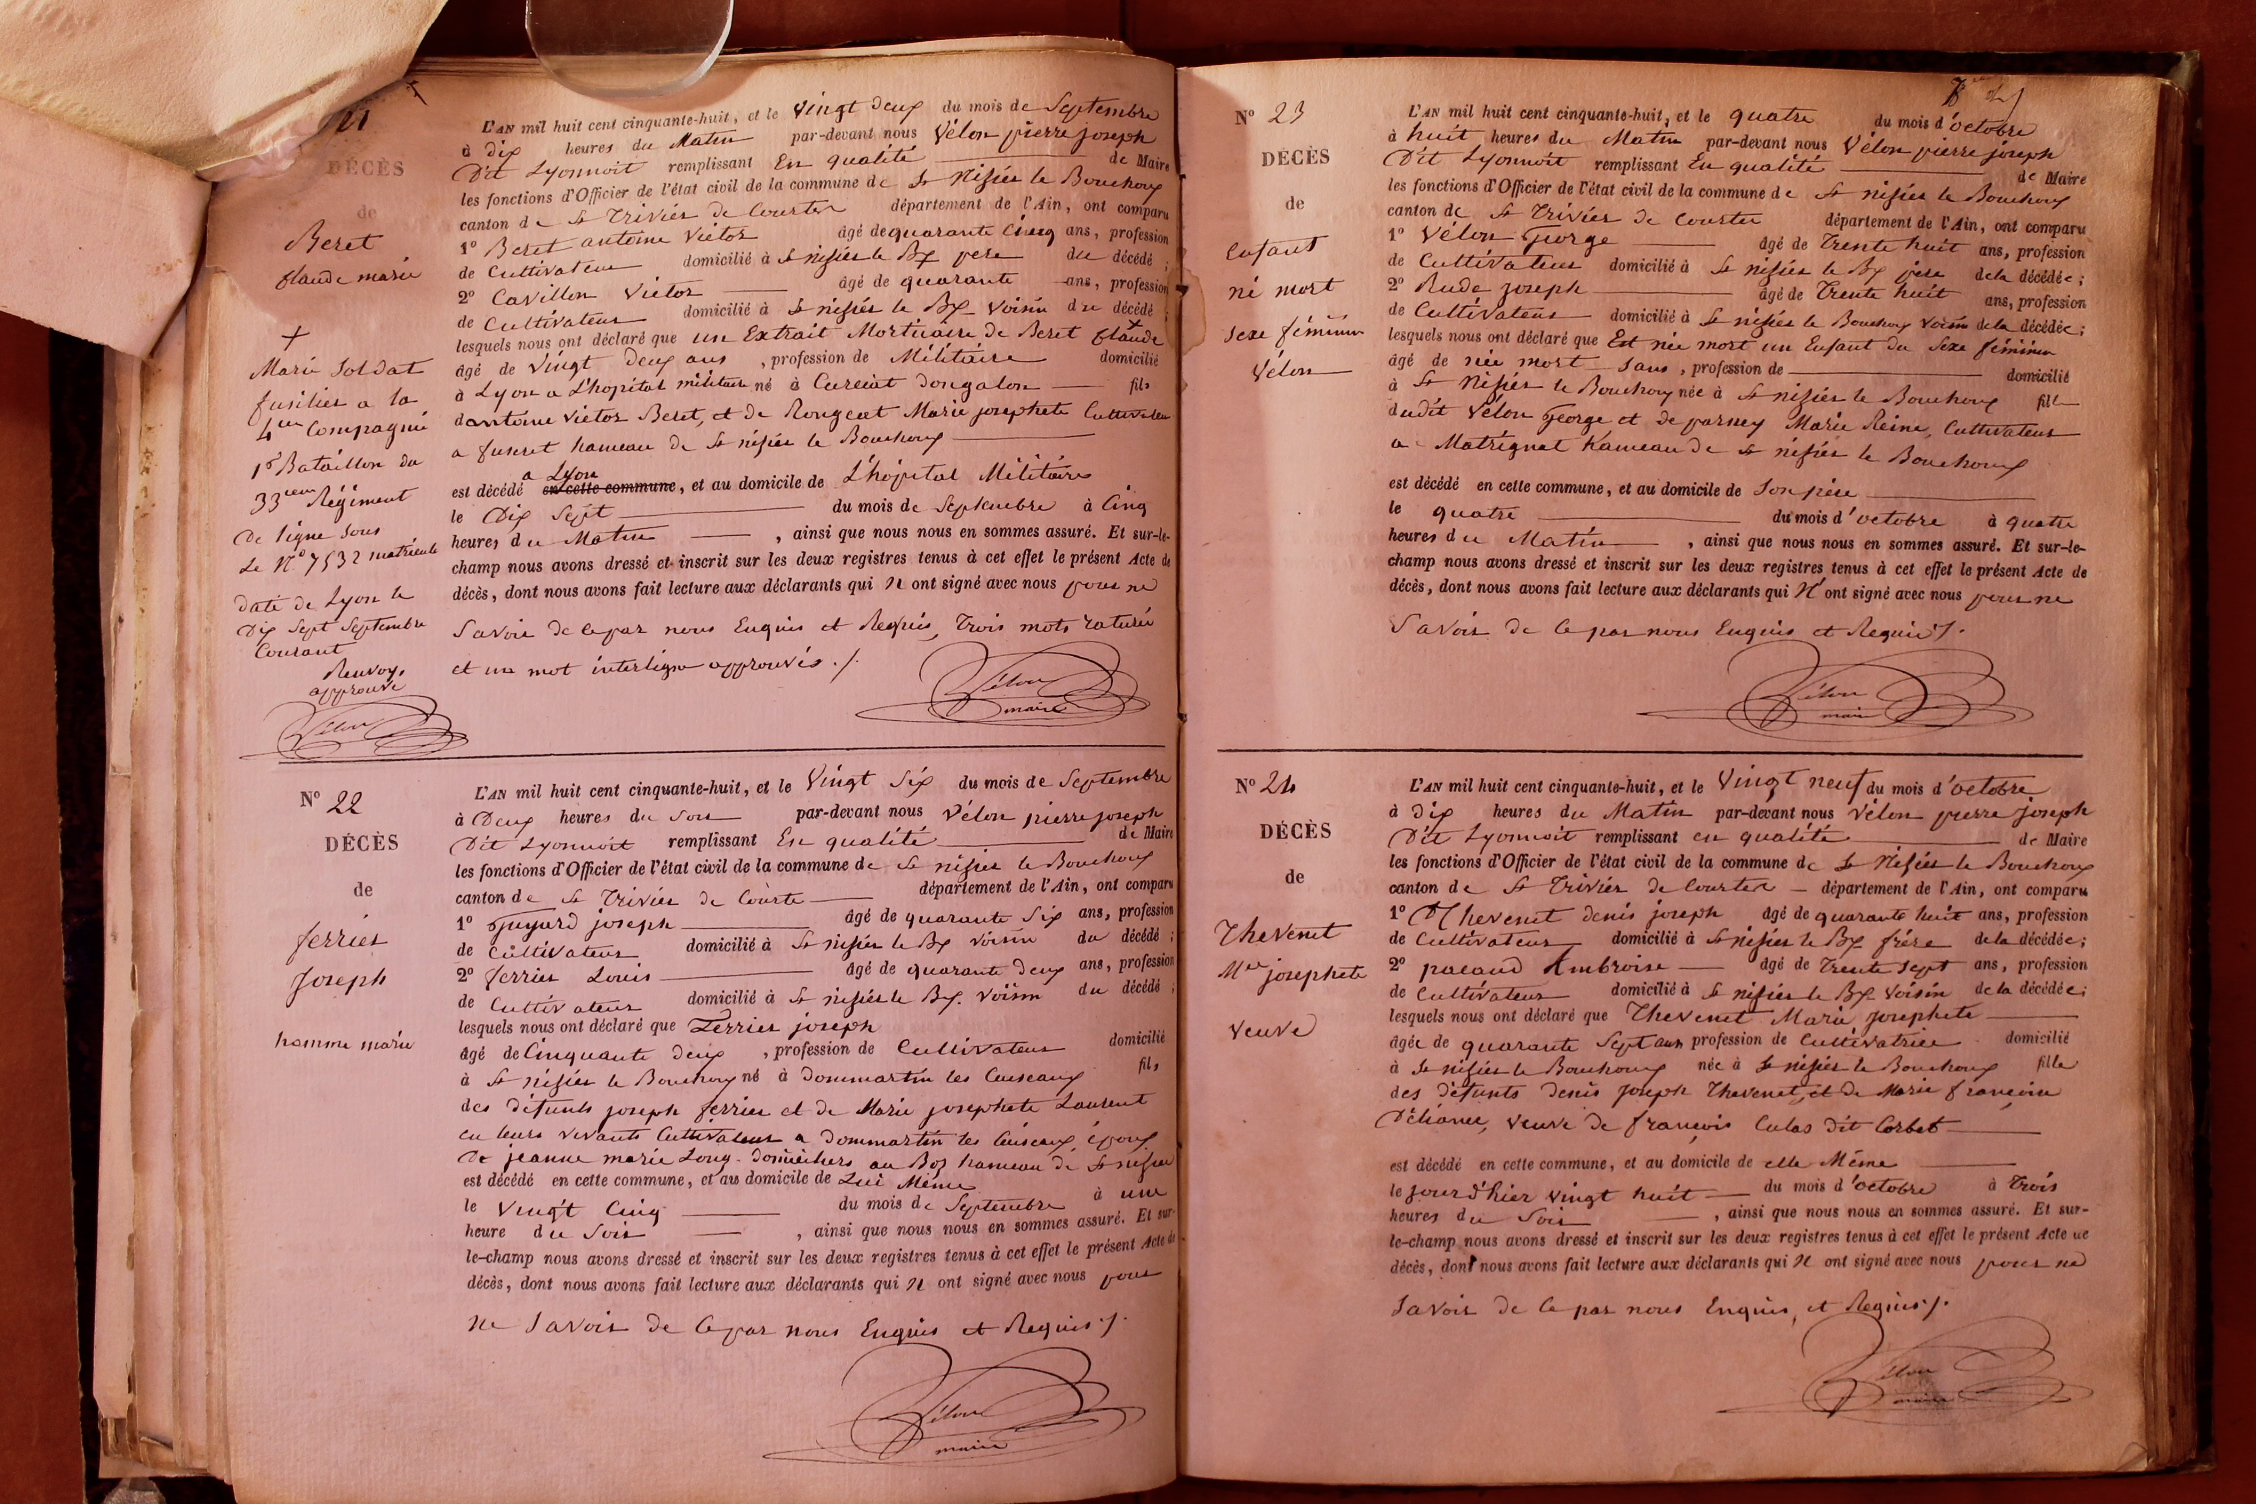 21
DÉCÈS
de
Beret
Claude marie
+
Marie Soldat
fusilier a la
4em Compagnie
1er Bataillon du
33iem Régiment
de ligne sous
le N° 7532 matricule
daté de Lyon le
Dix Sept Septembre
Courant
Renvoy.
approuvé
Vélon
L'AN mil huit cent cinquante-huit, et le vingt deux du mois de Septembre
à dix heures du Matin par-devant nous Vélon pierre joseph
Dit Lyonnoit remplissant En qualité de Maire
les fonctions d'Officier de l'état civil de la commune de St Nisiér le Bouchoux
canton de St Triviér de Courter département de l'Ain, ont comparu
1° Beret antoine Victor âgé de quarante Cincq ans, profession
de Cultivateur domicilié à St nisiér le Bx pere du décédé ;
2° Cavillon Victor âgé de quarante ans, profession
de Cultivateur domicilié à St nisiér le Bx voisin du décédé ;
lesquels nous ont déclaré que un Extrait Mortuaire de Beret Claude +
âgé de vingt deux ans , profession de Militaire domicilié
à Lyon a L'hopital militaire né à Curciat dongalon fils
dantoine Victor Beret, et de Rongeat Marie josephete Cultivateur
a fusret hameau de St nisiér le Bouchoux
a Lyon
est décédé en cette commune, et au domicile de L'hopital Militaire
le Dix Sept du mois de Septembre à Cinq
heures du Matin , ainsi que nous nous en sommes assuré. Et sur-le-
champ nous avons dressé et inscrit sur les deux registres tenus à cet effet le présent Acte de
décès, dont nous avons fait lecture aux déclarants qui N ont signé avec nous pour ne
Savoir de ce par nous Enquis et Requis, trois mots raturés
et un mot interligne approuvés ./.
Vélon
maire
N° 22
DÉCÈS
de
ferrier
Joseph
homme marié
L'AN mil huit cent cinquante-huit, et le Vingt Six du mois de Septembre
à Deux heures du Soir par-devant nous Vélon pierre joseph
Dit Lyonnoit remplissant En qualité de Maire
les fonctions d'Officier de l'état civil de la commune de St nisiér le Bouchoux
canton de St Triviér de Courte département de l'Ain, ont comparu
1° Guyard joseph âgé de quarante Six ans, profession
de Cultivateur domicilié à St nisiér le Bx voisin du décédé ;
2° ferrier Louis âgé de quarante deux ans, profession
de Cultivateur domicilié à St nisiér le Bx. voisin du décédé ;
lesquels nous ont déclaré que ferrier joseph
âgé de Cinquante deux , profession de Cultivateur domicilié
à St nisiér le Bouchoux né à dommartin les Cuiseaux fils
des défunts joseph ferrier et de Marie josephete Laurent
en leurs vivants Cultivateur a dommartin les Cuiseaux époux
De jeanne marie Long domiciliers au Boz hameau de St nisier
est décédé en cette commune, et au domicile de Lui Même
le Vingt Cinq du mois de Septembre à une
heure du Soir , ainsi que nous nous en sommes assuré. Et sur-
le-champ nous avons dressé et inscrit sur les deux registres tenus à cet effet le présent Acte de
décès, dont nous avons fait lecture aux déclarants qui N ont signé avec nous pour
ne Savoir de ce par nous Enquis et Requis ./.
Vélon
maire
N° 23
DÉCÈS
de
Enfant
né mort
Sexe féminin
Vélon
L'AN mil huit cent cinquante-huit, et le quatre du mois d'octobre
à huit heures du Matin par-devant nous Vélon pierre joseph
Dit Lyonnoit remplissant En qualité de Maire
les fonctions d'Officier de l'état civil de la commune de St nisiér le Bouchoux
canton de St Triviér de Courter département de l'Ain, ont comparu
1° Vélon George âgé de Trente huit ans, profession
de Cultivateur domicilié à St nisiér le Bx pere de la décédée ;
2° Rude joseph âgé de Trente huit ans, profession
de Cultivateur domicilié à St nisiér le Bouchoux voisin de la décédée ;
lesquels nous ont déclaré que Est née mort un Enfant du Sexe féminin
âgé de née mort Sans , profession de domicilié
à St Nisiér le Bouchoux née à St nisiér le Bouchoux fille
dudit Vélon George et de parney Marie Reine, Cultivateur
a Matrignat hameau de St nisiér le Bouchoux
est décédé en cette commune, et au domicile de Son père
le quatre du mois d'octobre à quatre
heures du Matin , ainsi que nous nous en sommes assuré. Et sur-le-
champ nous avons dressé et inscrit sur les deux registres tenus à cet effet le présent Acte de
décès, dont nous avons fait lecture aux déclarants qui N' ont signé avec nous pour ne
Savoir de ce par nous Enquis et Requis ./.
Vélon
maire
N° 24
DÉCÈS
de
Thevenet
Mie josephete
veuve
L'AN mil huit cent cinquante-huit, et le Vingt neuf du mois d'octobre
à dix heures du Matin par-devant nous Vélon pierre joseph
Dit Lyonnoit remplissant en qualité de Maire
les fonctions d'Officier de l'état civil de la commune de St Nisiér le Bouchoux
canton de St Triviér de Courter département de l'Ain, ont comparu
1° Thevenet denis joseph âgé de quarante huit ans, profession
de Cultivateur domicilié à St nisiér le Bx frère de la décédée ;
2° pacaud Ambroise âgé de Trente Sept ans, profession
de Cultivateur domicilié à St nisiér le Bx voisin de la décédée ;
lesquels nous ont déclaré que Thevenet Marie josephete
âgée de quarante Sept ans profession de Cultivatrice domicilié
à St nisiér le Bouchoux née à St nisiér le Bouchoux fille
des défunts denis joseph Thevenet, et de Marie françoise
Délianee, veuve de françois Culas dit Corbet
est décédé en cette commune, et au domicile de elle Même
le jour d'hier vingt huit du mois d'octobre à Trois
heures du Soir , ainsi que nous nous en sommes assuré. Et sur-
le-champ nous avons dressé et inscrit sur les deux registres tenus à cet effet le présent Acte de
décès, dont nous avons fait lecture aux déclarants qui N ont signé avec nous pour ne
Savoir de ce par nous Enquis, et Requis ./.
Vélon
maire